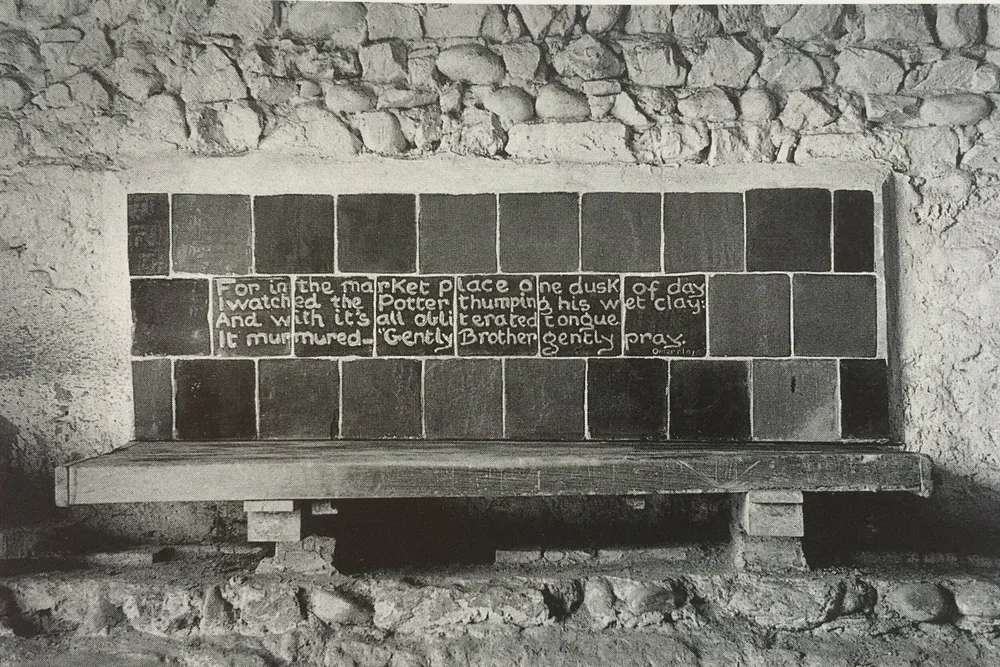 For in the market place one dusk of day
I watched the Potter thumping his wet clay:
And with it's all obliterated tongue
It murmured_ "Gently Brother gently pray.